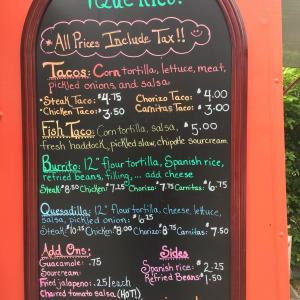 ¡Qué Rico!
*All Prices Include Tax!!
Tacos: Corn tortilla, lettuce, meat,
pickled onions, and salsa
•Steak Taco: $4.75 Chorizo Taco: $4.00
•Chicken Taco: $3.50 Carnitas Taco: $3.00
Fish Taco: Corn tortilla, salsa, $5.00
fresh haddock, pickled slaw, chipotle sourcream
Burrito: 12" flour tortilla, Spanish rice,
refried beans, filling,... add cheese
Steak $8.50 Chicken $7.25 Chorizo $7.75 Carnitas: $6.75
Quesadilla: 12" flour tortilla, cheese, lettuce,
salsa, pickled onion: $6.25
Steak: $10.25 Chicken $8.00 Chorizo $8.75 Carnitas: $7.50
Add Ons: Sides
Guacamole: .75
Sourcream: Spanish rice: $2.25
Fried jalapeno: .25 each Refried Beans: $1.50
Charred tomato salsa (HOT!)